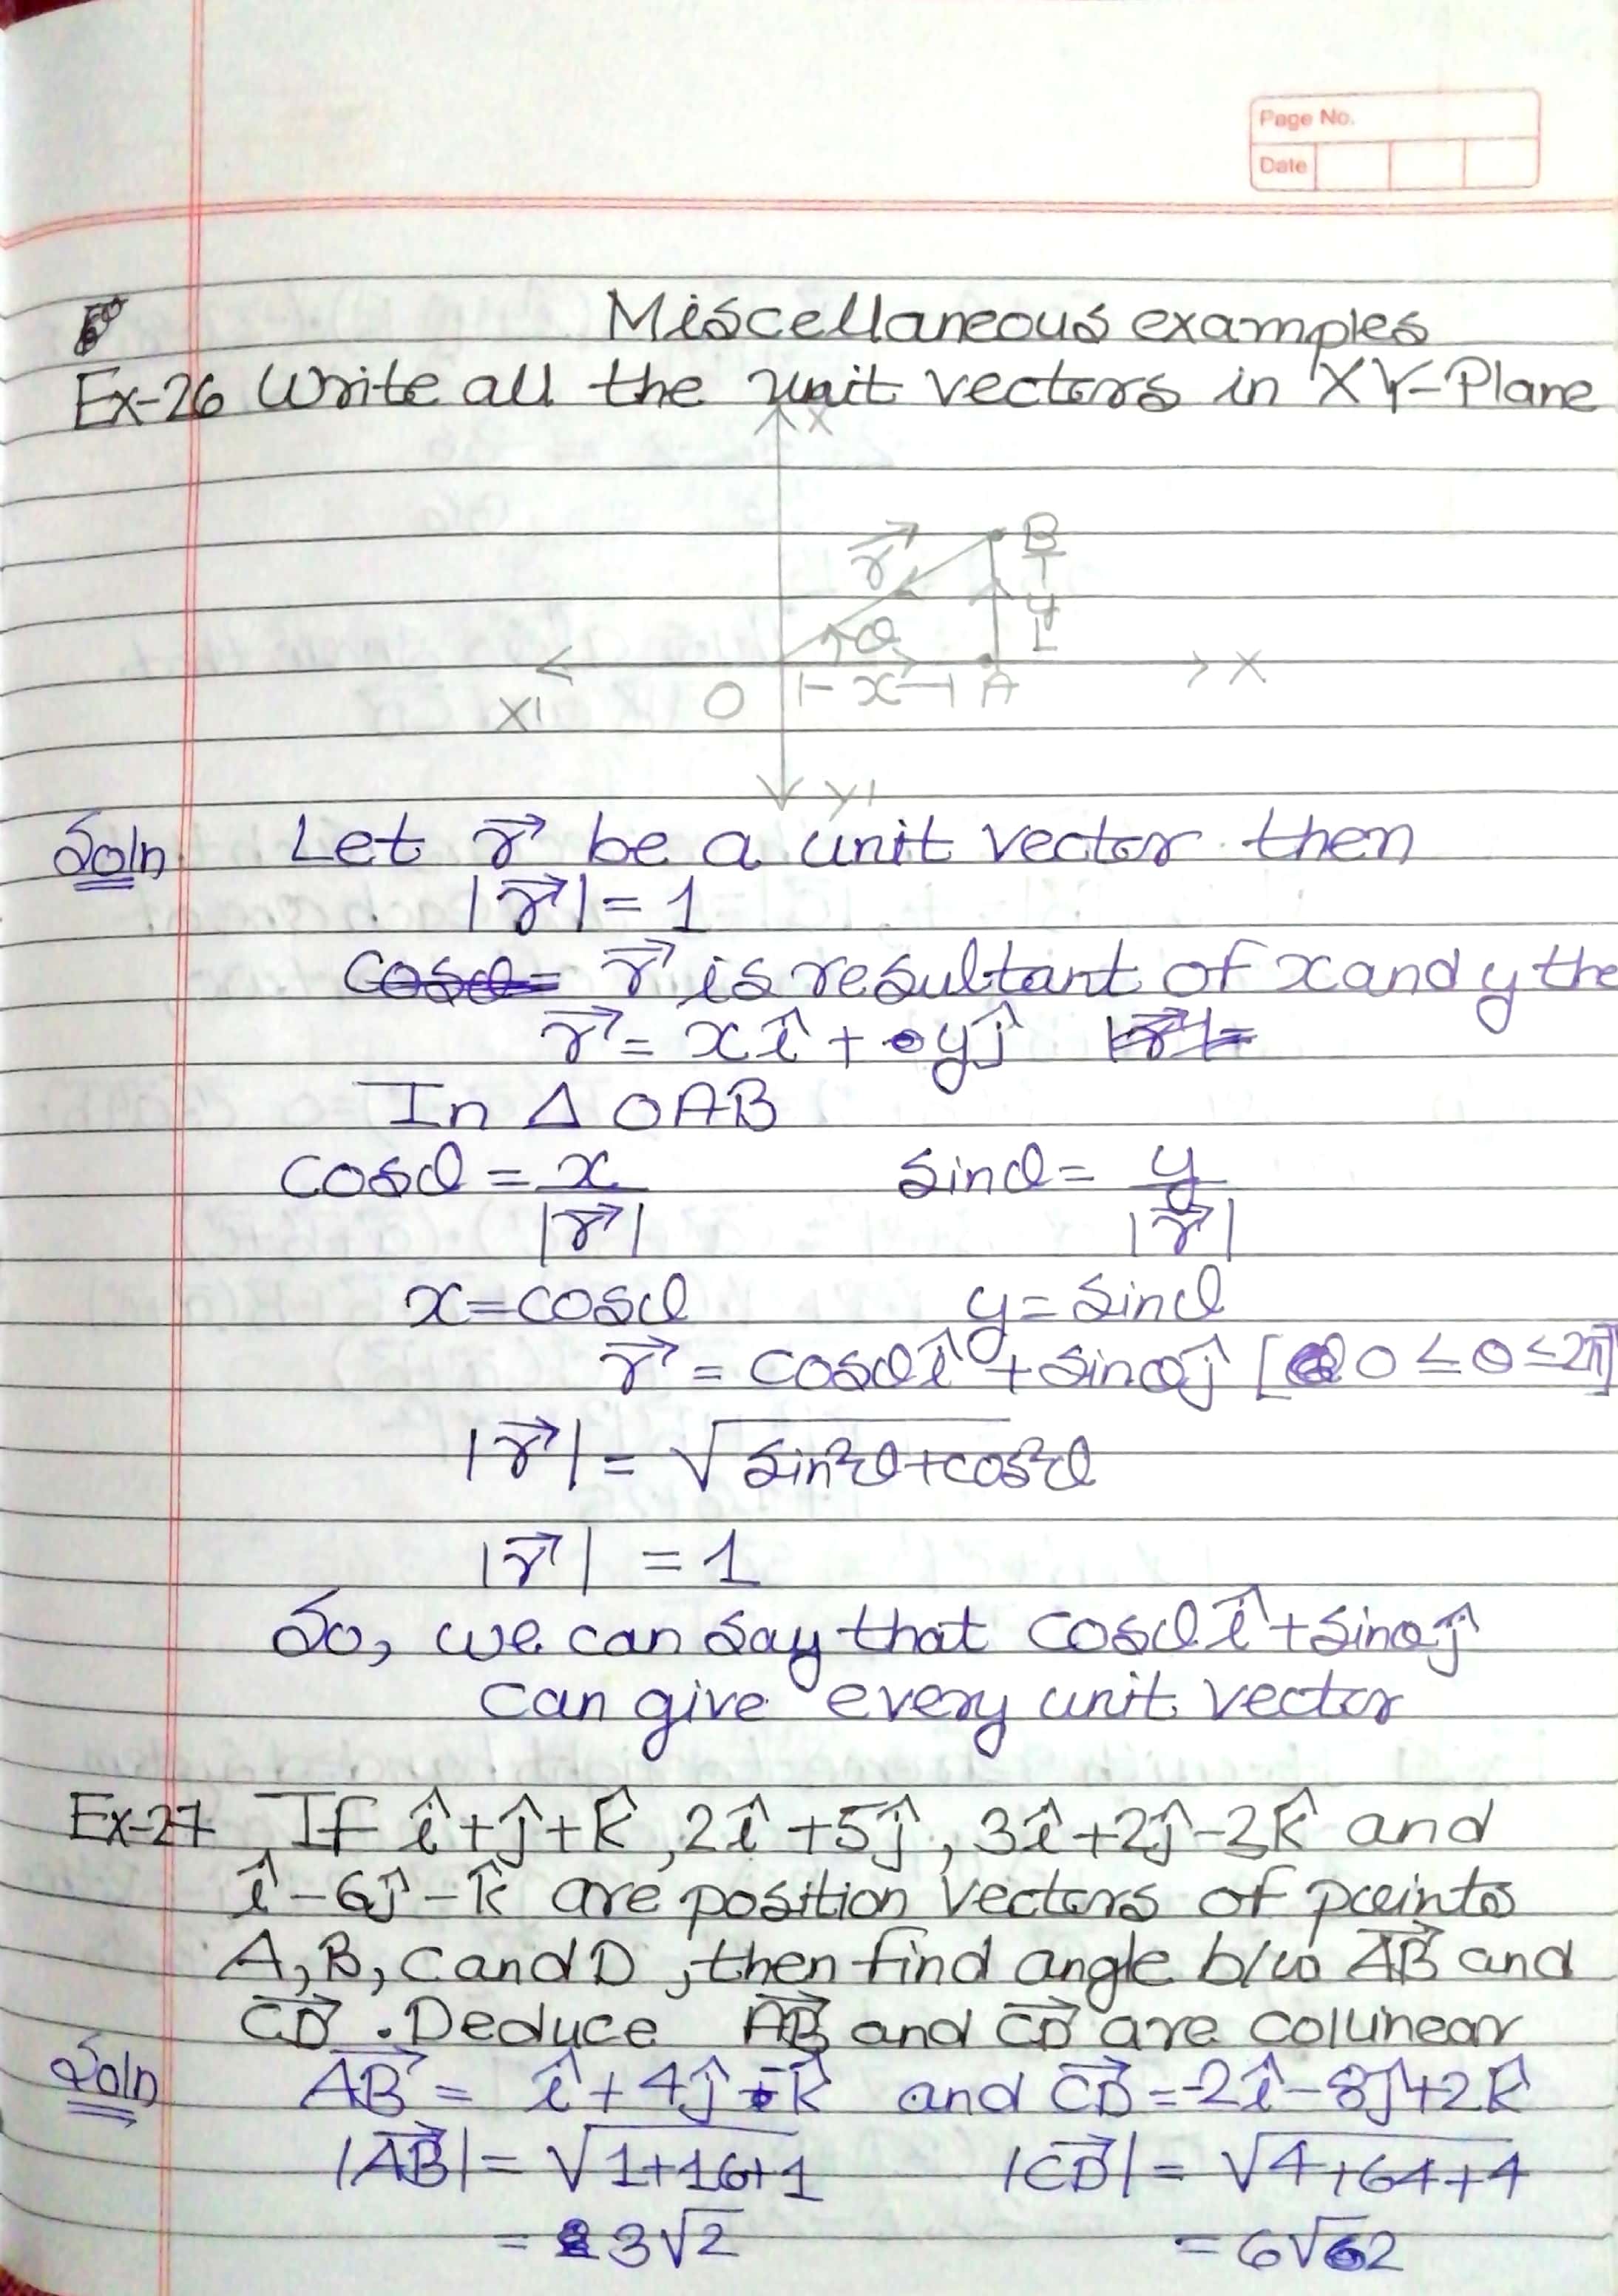 Page No.
Date
Miscellaneous examples
Ex-26 Write all the unit vectors in XY-Plane
X
r⃗ B
y
θ
X' O x A X
Y'
Soln Let r⃗ be a unit vector then
|r⃗| = 1
r⃗ is resultant of x and y the
r⃗ = xî + yĵ
In △ OAB
cosθ = x/|r⃗| sinθ = y/|r⃗|
x = cosθ y = sinθ
r⃗ = cosθî + sinθĵ [0 ≤ θ ≤ 2π]
|r⃗| = √sin²θ+cos²θ
|r⃗| = 1
So, we can say that cosθî + sinθĵ
can give every unit vector
Ex-27 If î+ĵ+k̂, 2î+5ĵ, 3î+2ĵ-3k̂ and
î-6ĵ-k̂ are position vectors of points
A, B, C and D, then find angle b/w AB⃗ and
CD⃗. Deduce AB⃗ and CD⃗ are collinear
Soln AB⃗ = î+4ĵ-k̂ and CD⃗ = -2î-8ĵ+2k̂
|AB⃗| = √1+16+1 |CD⃗| = √4+64+4
= 3√2 = 6√2